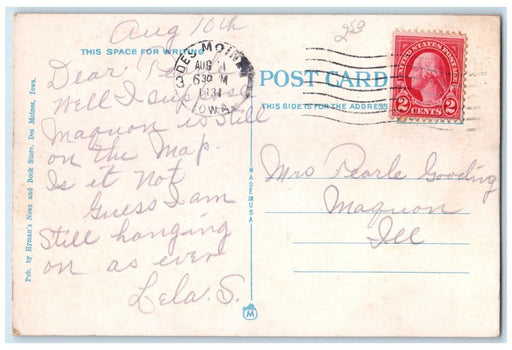 Aug 10th
2.50
THIS SPACE FOR WRITING
DES MOINES
AUG 11
630 PM
1931
IOWA
UNITED STATES POSTAGE
2 2
CENTS
POST CARD
THIS SIDE IS FOR THE ADDRESS
Dear
Well I suppose
Maquon is still
on the Map.
Is it not
Guess I am
Still hanging
on as ever
Lela. S.
Mrs Pearle Gooding
Maquon
Ill
Pub. by Hyman's News and Book Store, Des Moines, Iowa.
MADE IN U.S.A.
M